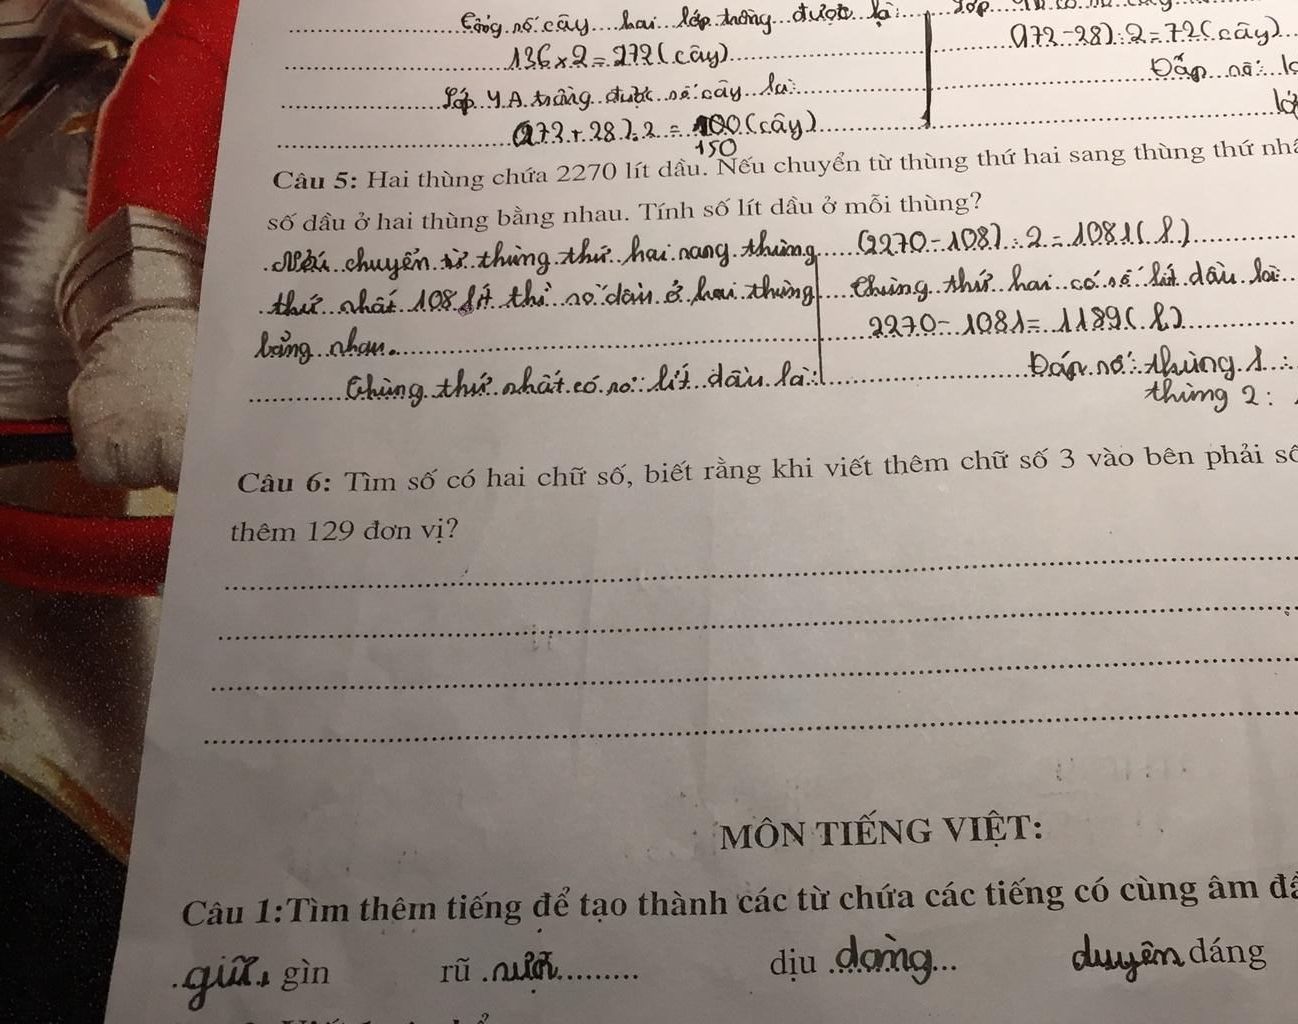 Cộng số cây hai lớp trồng được là:
136 x 2 = 272 (cây)
Lớp 4A trồng được số cây là:
(272 + 28) : 2 = 100 (cây)
150
(272 - 28) : 2 = 72 (cây)
Đáp số: lớ
lớ
Câu 5: Hai thùng chứa 2270 lít dầu. Nếu chuyển từ thùng thứ hai sang thùng thứ nhấ
số dầu ở hai thùng bằng nhau. Tính số lít dầu ở mỗi thùng?
Nếu chuyển từ thùng thứ hai sang thùng
thứ nhất 108 lít thì số dầu ở hai thùng
bằng nhau.
Thùng thứ nhất có số lít dầu là:
(2270 - 108) : 2 = 1081 (l)
Thùng thứ hai có số lít dầu là:
2270 - 1081 = 1189 (l)
Đáp số: thùng 1:
thùng 2:
Câu 6: Tìm số có hai chữ số, biết rằng khi viết thêm chữ số 3 vào bên phải số
thêm 129 đơn vị?
MÔN TIẾNG VIỆT:
Câu 1:Tìm thêm tiếng để tạo thành các từ chứa các tiếng có cùng âm đầ
giữ gìn rũ rượi dịu dàng duyên dáng